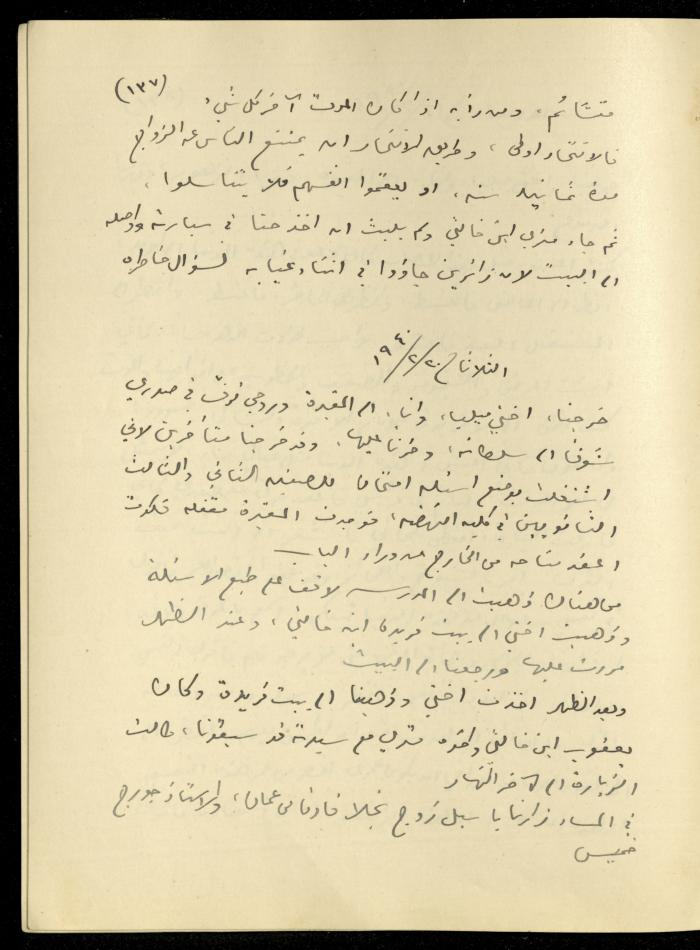 (١٣٧)
متشائم، ومن رأيه اذا كان الموت آخر كل شيء
فالانتحار اولى، وطريق الانتحار ان يمتنع الناس عن الزواج
مدة ثمانين سنه، او يعقموا انفسهم فلا يتناسلوا،
ثم جاء متري ابن خالتي ولم يلبث ان اخذنا في سيارته وواصله
الى البيت لان زائرين جاؤوا في اثناء غيابه لسؤال خاطره
الثلاثاء ٢٠/٢/١٩٤٠
خرجنا، اختي ميليا، وانا، الى المقبرة وروحي ترفّ في صدري
شوقا الى سلطانه، وحزنا عليها، وقد خرجنا متأخرين لاني
اشتغلت بوضع اسئله امتحان للصفين الثاني والثالث
الثانويين في كليه النهضه، فوجدت المقبرة مقفله فكدت
اعقد مناحه من الخارج من وراء الباب
من هناك ذهبت الى المدرسه لاقف على طبع الاسئلة
وذهبت اختي الى بيت فريدة ابنة خالتي، وعند الظهر
مررت عليها ورجعنا الى البيت
وبعد الظهر اخذت اختي وذهبنا الى بيت فريدة وكان
يعقوب ابن خالتي واخوه متري مع سيدته قد سبقونا، طالت
الزيارة الى آخر النهار
في المساء زارنا باسيل زوج نجلا قادما من عمان، والاستاذ جورج
خميس